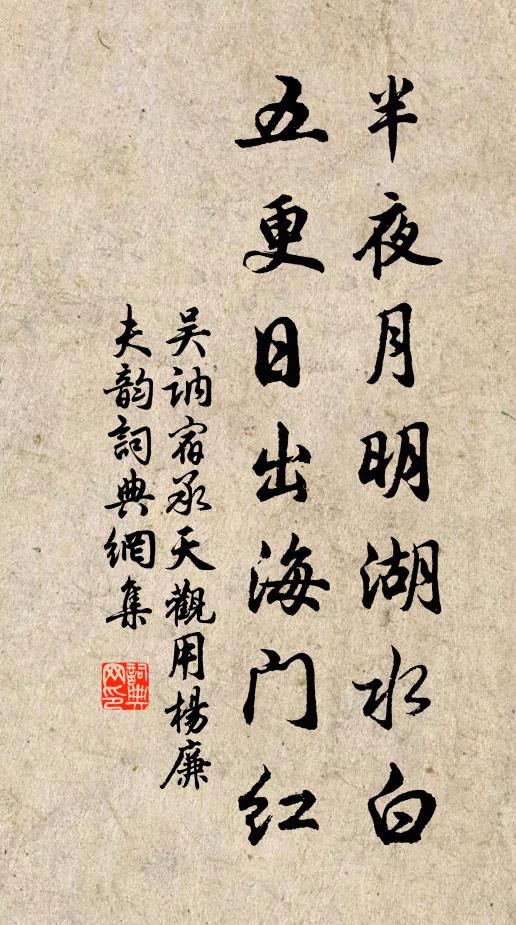 半夜月明湖水白
五更日出海门红
吴讷宿承天觀用楊廉
夫韵詞典網集
詞典网印